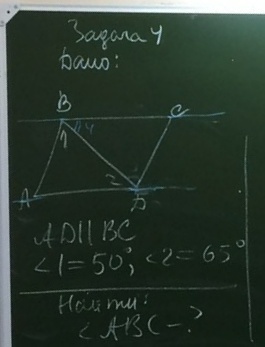 Задача 4
Дано:
B C
1 4
2
A D
AD||BC
<1=50°, <2=65°
Найти:
<ABC-?